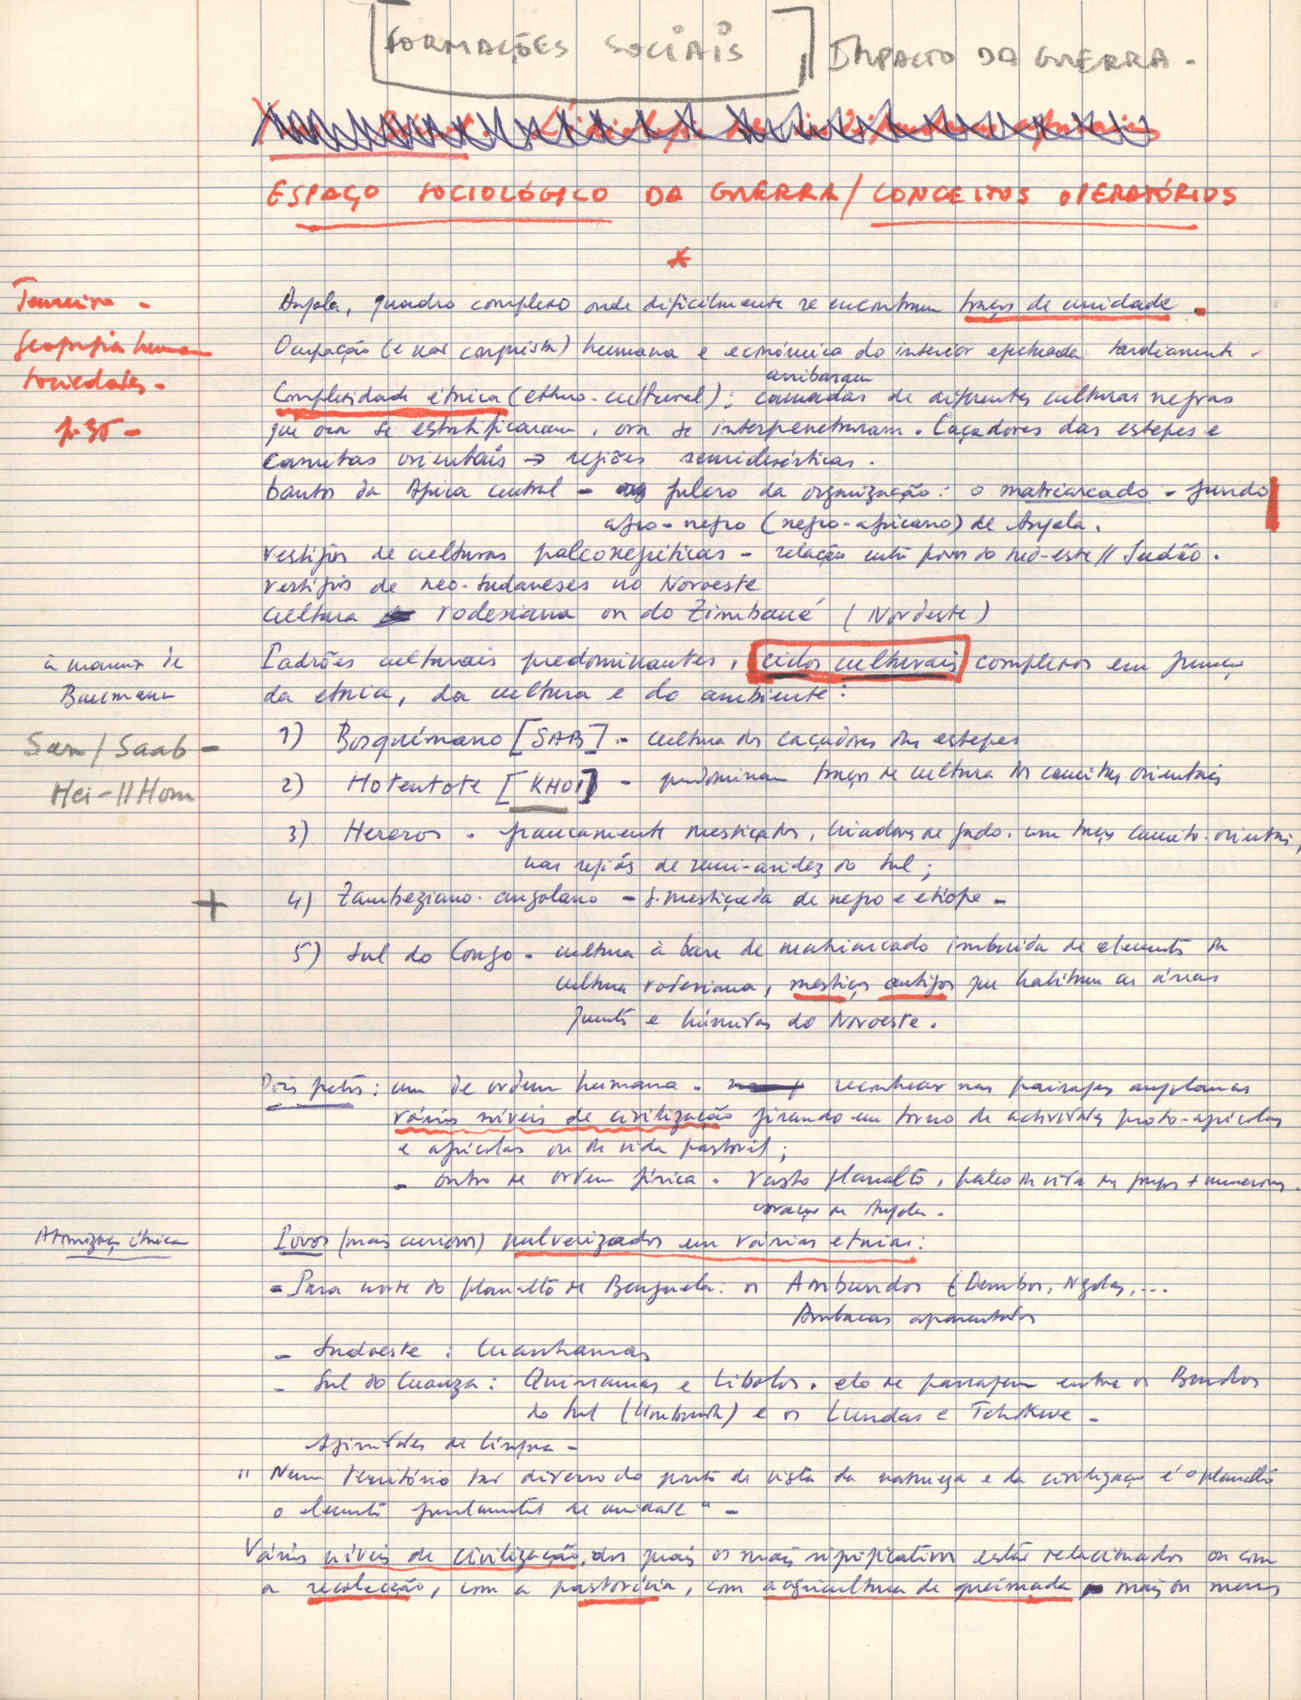 [FORMAÇÕES SOCIAIS] IMPACTO DA GUERRA -
ESPAÇO SOCIOLÓGICO DA GUERRA / CONCEITOS OPERATÓRIOS
*
Angola, quadro complexo onde dificilmente se encontram traços de unidade.
Geografia humana
Ocupação (e não conquista) humana e económica do interior efectuada tardiamente -
Sociedades -
arribaram
Complexidade étnica (ethno-cultural): camadas de diferentes culturas negras
p. 35 -
que ora se estratificaram, ora se interpenetraram. Caçadores das estepes e
camitas orientais → regiões semidesérticas.
bantos da Africa central - fulcro da organização: o matriarcado - fundo
afro-negro (negro-africano) de Angola.
vestígios de culturas paleonegríticas - relação entre povos do // Sudão.
vestígios de neo-sudaneses no Noroeste
cultura rodesiana ou do Zimbaué (Nordeste)
à maneira de
Baumann
Padrões culturais predominantes, ciclos culturais complexos em função
da etnia, da cultura e do ambiente:
San / Saab -
1) Bosquímano [SAB] - cultura dos caçadores das estepes
Hei-//Hom
2) Hotentote [KHOI] - predominam traços de cultura dos camitas orientais
3) Hereros - francamente mestiçados, criadores de gado, com traços camito-orientais,
nas regiões de semi-aridez do Sul;
+
4) Zambeziano-angolano - mestiçada de negro e etíope -
5) Sul do Congo - cultura à base de matriarcado imbuída de elementos da
cultura rodesiana, mestiços antigos que habitam as áreas
e húmidas do Noroeste.
Dois factos: um de ordem humana - reconhecer nas paisagens angolanas
vários níveis de civilização girando em torno de actividades proto-agrícolas
e agrícolas ou de vida pastoril;
- outro de ordem física - Vasto planalto, palco da vida dos grupos + numerosos -
coração de Angola.
Atomização étnica
Povos (mais numerosos) pulverizados em várias etnias:
- Para norte do planalto de Benguela: os Ambundos (Dembos, Ngolas, ...
Ambacas aparentados
- Sudoeste: Cuanhamas
- Sul do Cuanza: Quissamas e Libolos, elo de passagem entre os Bundos
do Sul (Umbundu) e os Lundas e Tchokwe -
Afinidades de língua -
" Num território tão diverso do ponto de vista da natureza e da civilização é o planalto
o elemento fundamental de unidade " -
Vários níveis de civilização, dos quais os mais significativos estão relacionados ou com
a recolecção, com a pastorícia, com a agricultura de queimada mais ou menos